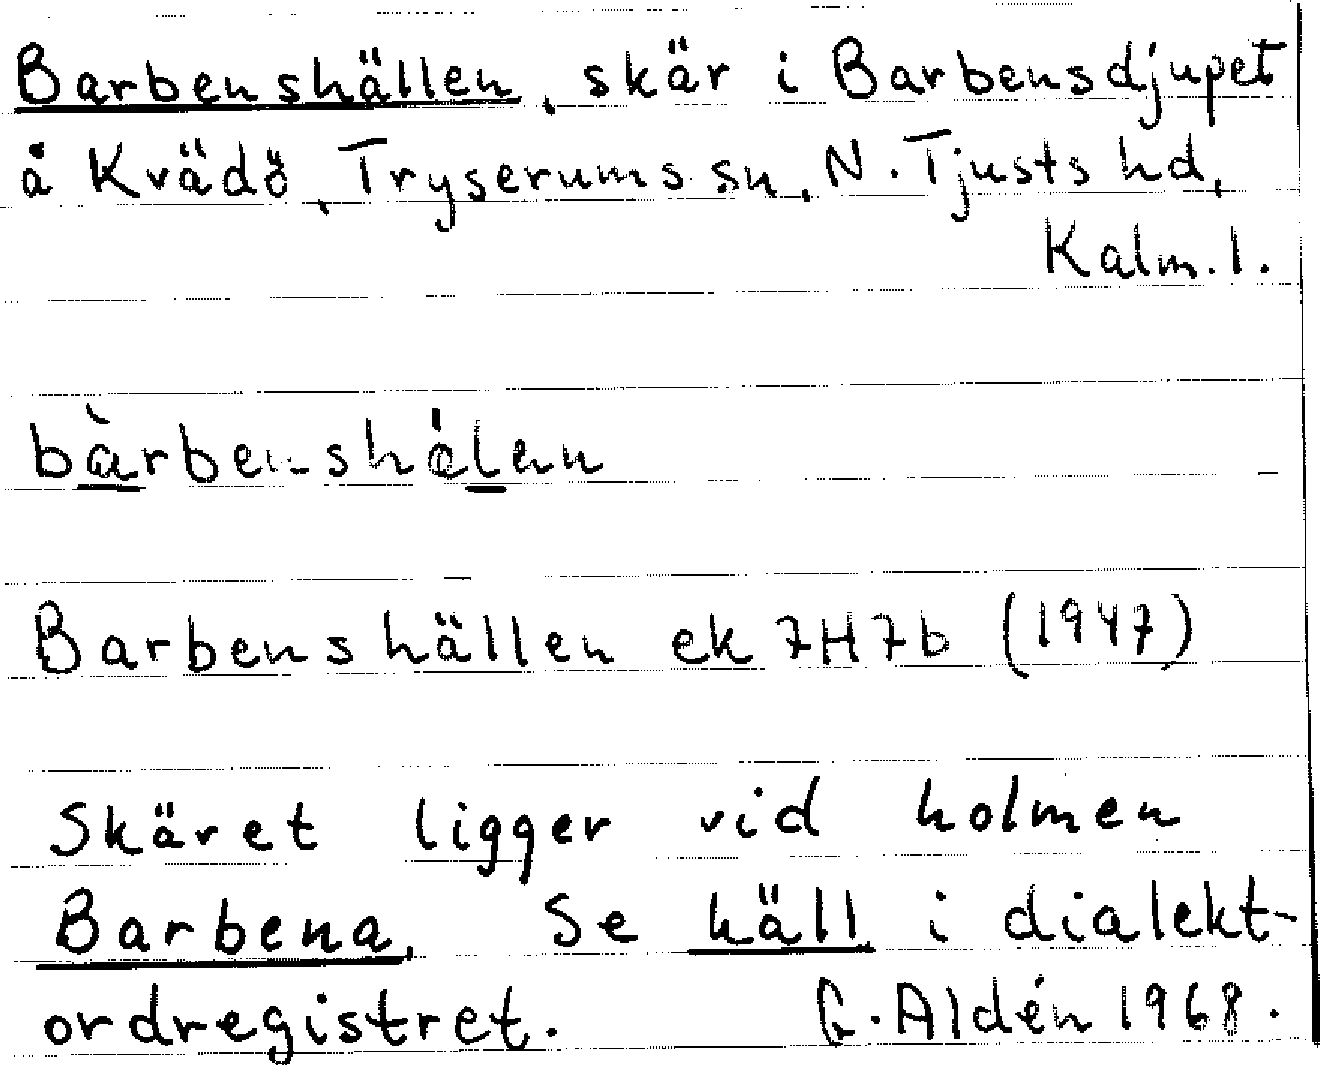 Barbenshällen, skär i Barbensdjupet
å Kvädö, Tryserums sn, N. Tjusts hd,
Kalm. l.
bàrbenshálen
Barbenshällen ek 7H7b (1947)
Skäret ligger vid holmen
Barbena. Se häll i dialekt-
ordregistret. G. Aldén 1968.